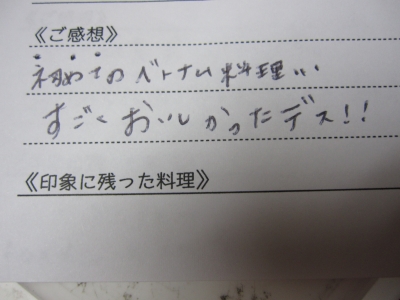 《ご感想》
初めてのベトナム料理...
すごくおいしかったデス!!
《印象に残った料理》